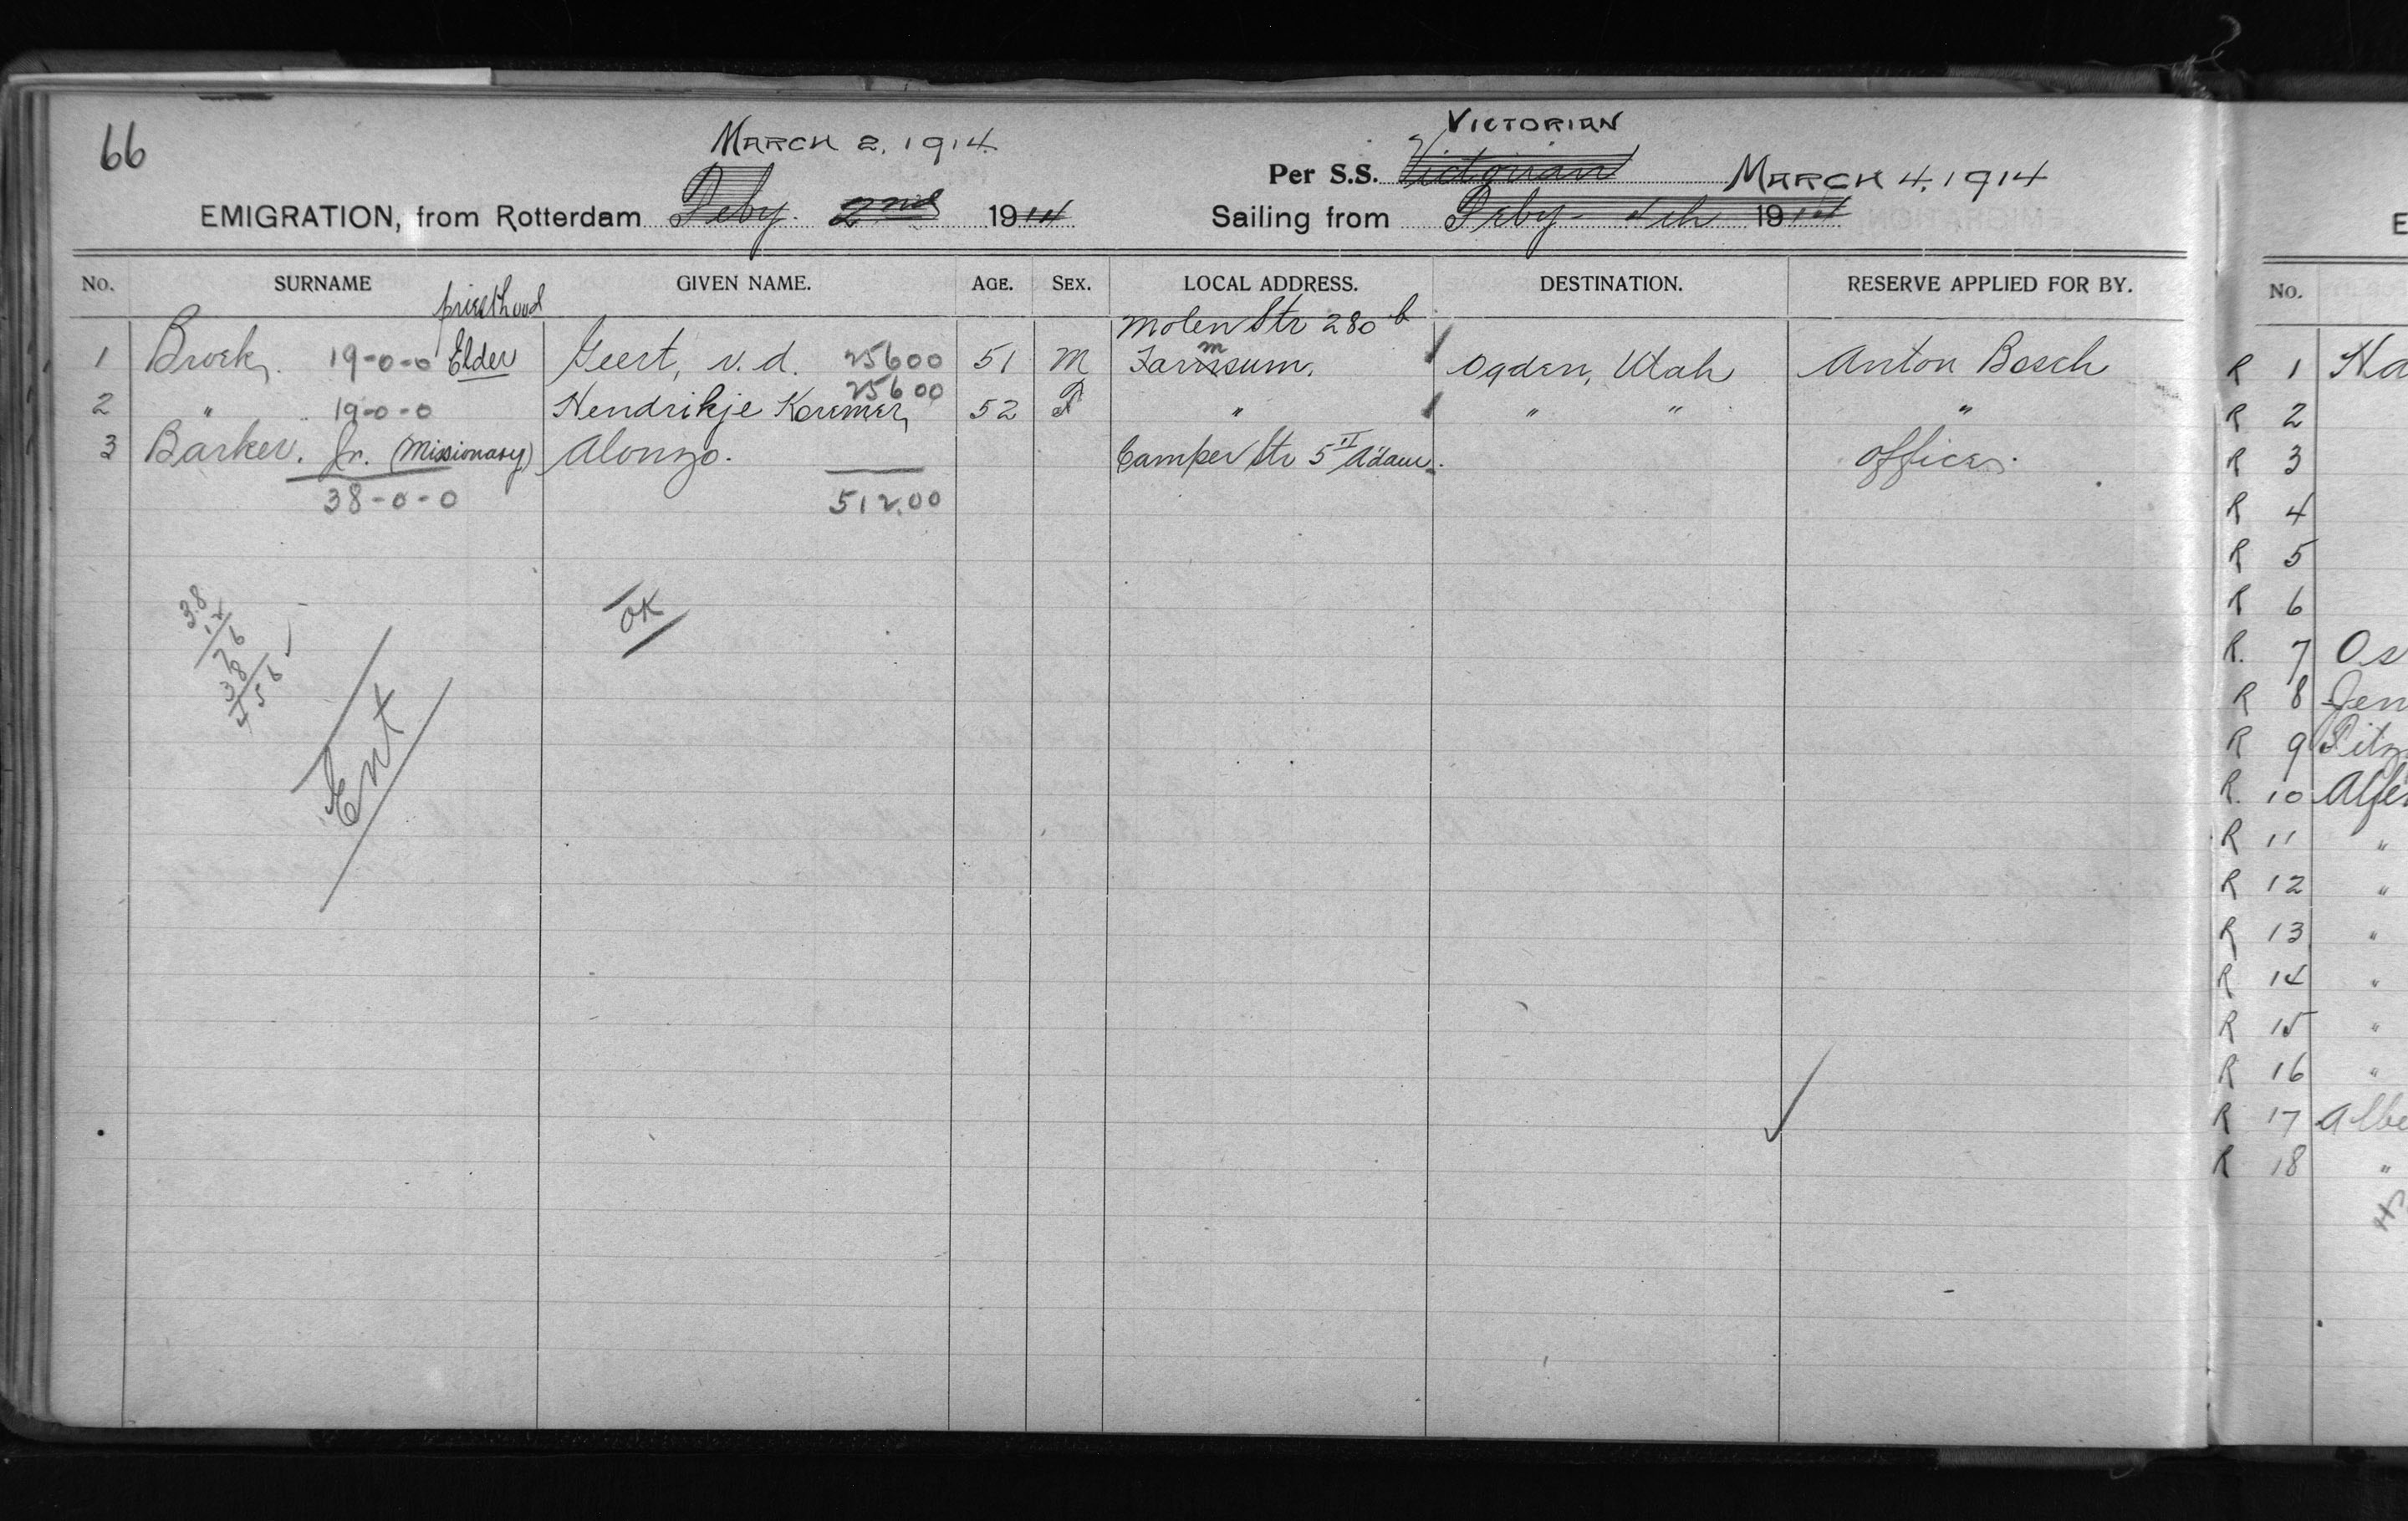 66
MARCH 2, 1914
VICTORIAN
Per S.S. Victorian MARCH 4, 1914
EMIGRATION, from Rotterdam Feby. 2nd 1914 Sailing from Feby. 4th 1914
No. SURNAME priesthood GIVEN NAME. AGE. SEX. LOCAL ADDRESS. DESTINATION. RESERVE APPLIED FOR BY.
Molen Str 280 b
1 Broek, 19-0-0 Elder Geert, v. d. 25600 51 M Farmsum, Ogden, Utah Anton Bosch
2 " 19-0-0 Hendrikje Koremer, 25600 52 F " " " "
3 Barker. Jr. (Missionary) Alonzo. Camper Str 5 II A'dam. Office.
38-0-0 512.00
38
12
76
38
456
OK
Ent
E
No.
R 1 Ha
R 2
R 3
R 4
R 5
R 6
R. 7 Os
R 8 Jen
R 9 Pitz
R. 10 Alfe
R 11 "
R 12 "
R 13 "
R 14 "
R 15 "
R 16 "
R 17 Albe
R 18 "